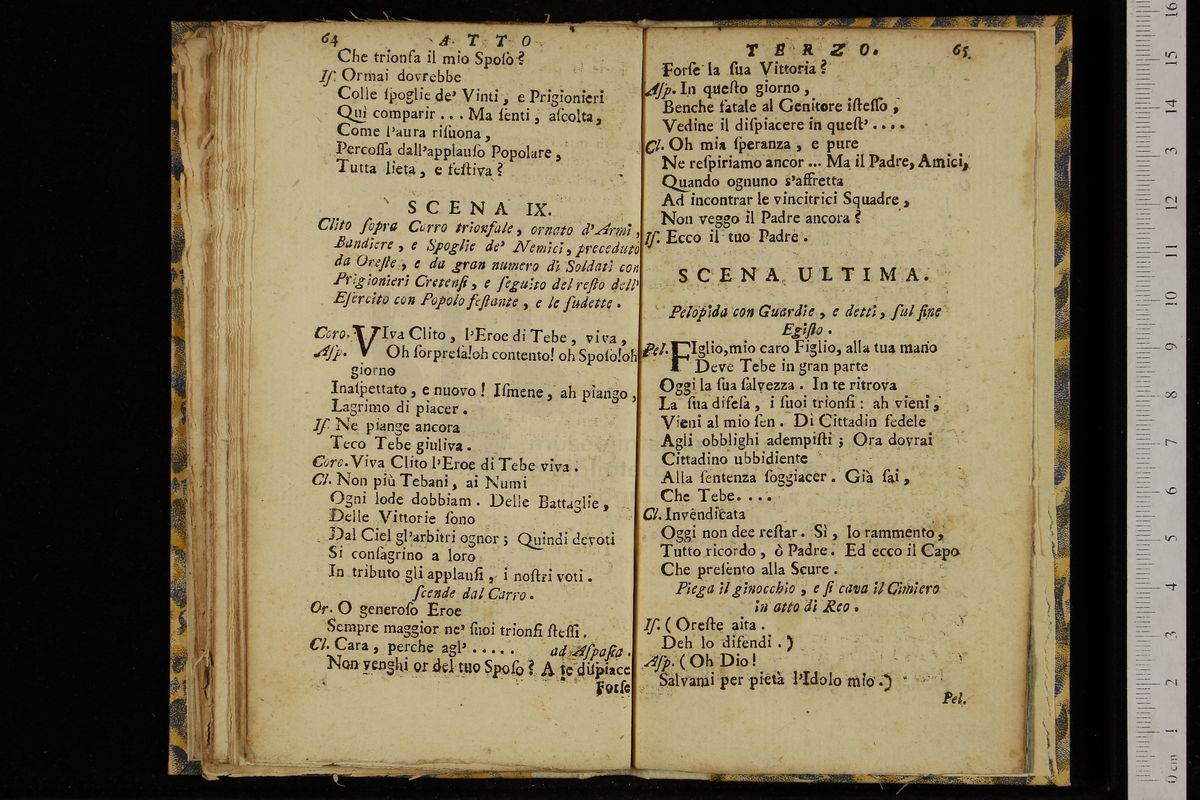 64 A T T O
Che trionfa il mio Spoſo?
Iſ. Ormai dovrebbe
Colle ſpoglie de' Vinti, e Prigionieri
Quì comparir... Ma ſenti, aſcolta,
Come l'aura riſuona,
Percoſſa dall'applauſo Popolare,
Tutta lieta, e feſtiva?
SCENA IX.
Clito ſopra Carro trionfale, ornato d'Armi,
Bandiere, e Spoglie de' Nemici, preceduto
da Oreſte, e da gran numero di Soldati con
Prigionieri Cretenſi, e ſeguito del reſto dell'
Eſercito con Popolo feſtante, e le ſudette.
Coro. VIva Clito, l'Eroe di Tebe, viva,
Aſp. Oh ſorpreſa!oh contento! oh Spoſo!oh
giorno
Inaſpettato, e nuovo! Iſmene, ah piango,
Lagrimo di piacer.
Iſ. Ne piange ancora
Teco Tebe giuliva.
Coro. Viva Clito l'Eroe di Tebe viva.
Cl. Non più Tebani, ai Numi
Ogni lode dobbiam. Delle Battaglie,
Delle Vittorie ſono
Dal Ciel gl'arbitri ognor; Quindi devoti
Si conſagrino a loro
In tributo gli applauſi, i noſtri voti.
ſcende dal Carro.
Or. O generoſo Eroe
Sempre maggior ne' ſuoi trionfi ſteſſi.
Cl. Cara, perche agl'..... ad Aſpaſia.
Non venghi or del tuo Spoſo? A te diſpiace
Forſe
TERZO. 65.
Forſe la ſua Vittoria?
Aſp. In queſto giorno,
Benche fatale al Genitore iſteſſo,
Vedine il diſpiacere in queſt'....
Cl. Oh mia ſperanza, e pure
Ne reſpiriamo ancor... Ma il Padre, Amici,
Quando ognuno s'affretta
Ad incontrar le vincitrici Squadre,
Non veggo il Padre ancora?
Iſ. Ecco il tuo Padre.
SCENA ULTIMA.
Pelopida con Guardie, e detti, ſul fine
Egiſto.
Pel. FIglio,mio caro Figlio, alla tua mano
Deve Tebe in gran parte
Oggi la ſua ſalvezza. In te ritrova
La ſua difeſa, i ſuoi trionfi: ah vieni,
Vieni al mio ſen. Di Cittadin fedele
Agli obblighi adempiſti; Ora dovrai
Cittadino ubbidiente
Alla ſentenza ſoggiacer. Già ſai,
Che Tebe....
Cl. Invendicata
Oggi non dee reſtar. Sì, lo rammento,
Tutto ricordo, ò Padre. Ed ecco il Capo
Che preſento alla Scure.
Piega il ginocchio, e ſi cava il Cimiero
in atto di Reo.
Iſ. (Oreſte aita.
Deh lo difendi.)
Aſp. (Oh Dio!
Salvami per pietà l'Idolo mio.)
Pel.
0 cm 1 2 3 4 5 6 7 8 9 10 11 12 13 14 15 16